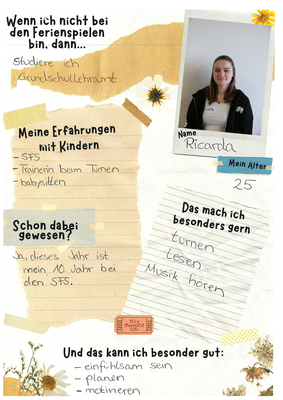 Wenn ich nicht bei
den Ferienspielen
bin, dann...
Studiere ich
Grundschullehramt
Name
Ricarda
Mein Alter
25
Meine Erfahrungen
mit Kindern
- SFS
- Trainerin beim Turnen
- babysitten
Das mach ich
besonders gern
turnen
Lesen
Musik hören
Schon dabei
gewesen?
Ja, dieses Jahr ist
mein 10. Jahr bei
den SFS.
Und das kann ich besonder gut:
- einfühlsam sein
- planen
- motivieren